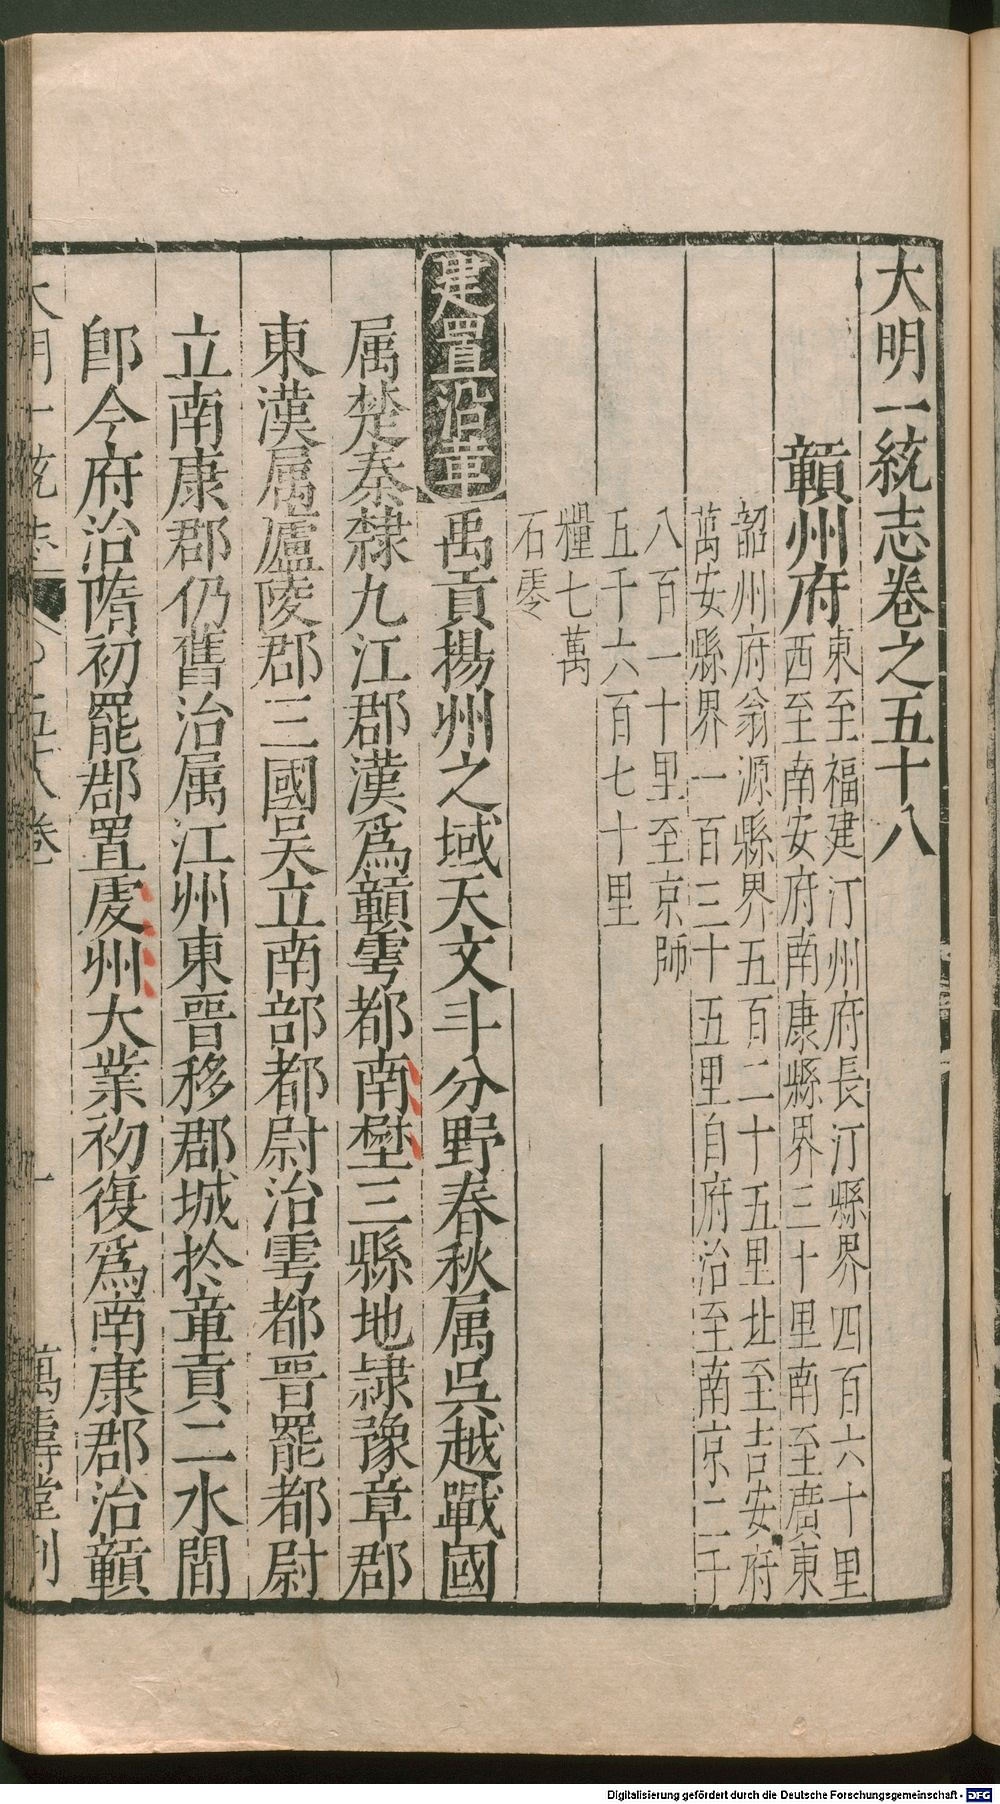 大明一統志卷之五十八
贑州府
東至福建汀州府長汀縣界四百六十里
西至南安府南康縣界三十里南至廣東
韶州府翁源縣界五百二十五里北至吉安府
萬安縣界一百三十五里自府治至南京二千
八百一十里至京師
五千六百七十里
糧七萬
石零
建置沿革
禹貢揚州之域天文斗分野春秋属吳越戰國
属楚秦隸九江郡漢爲贑雩都南壄三縣地隸豫章郡
東漢属廬陵郡三國吳立南部都尉治雩都晉罷都尉
立南康郡仍舊治属江州東晉移郡城於章貢二水間
即今府治隋初罷郡置虔州大業初復爲南康郡治贑
大明一統志
五十八卷
一
萬壽堂刊
Digitalisierung gefördert durch die Deutsche Forschungsgemeinschaft - DFG